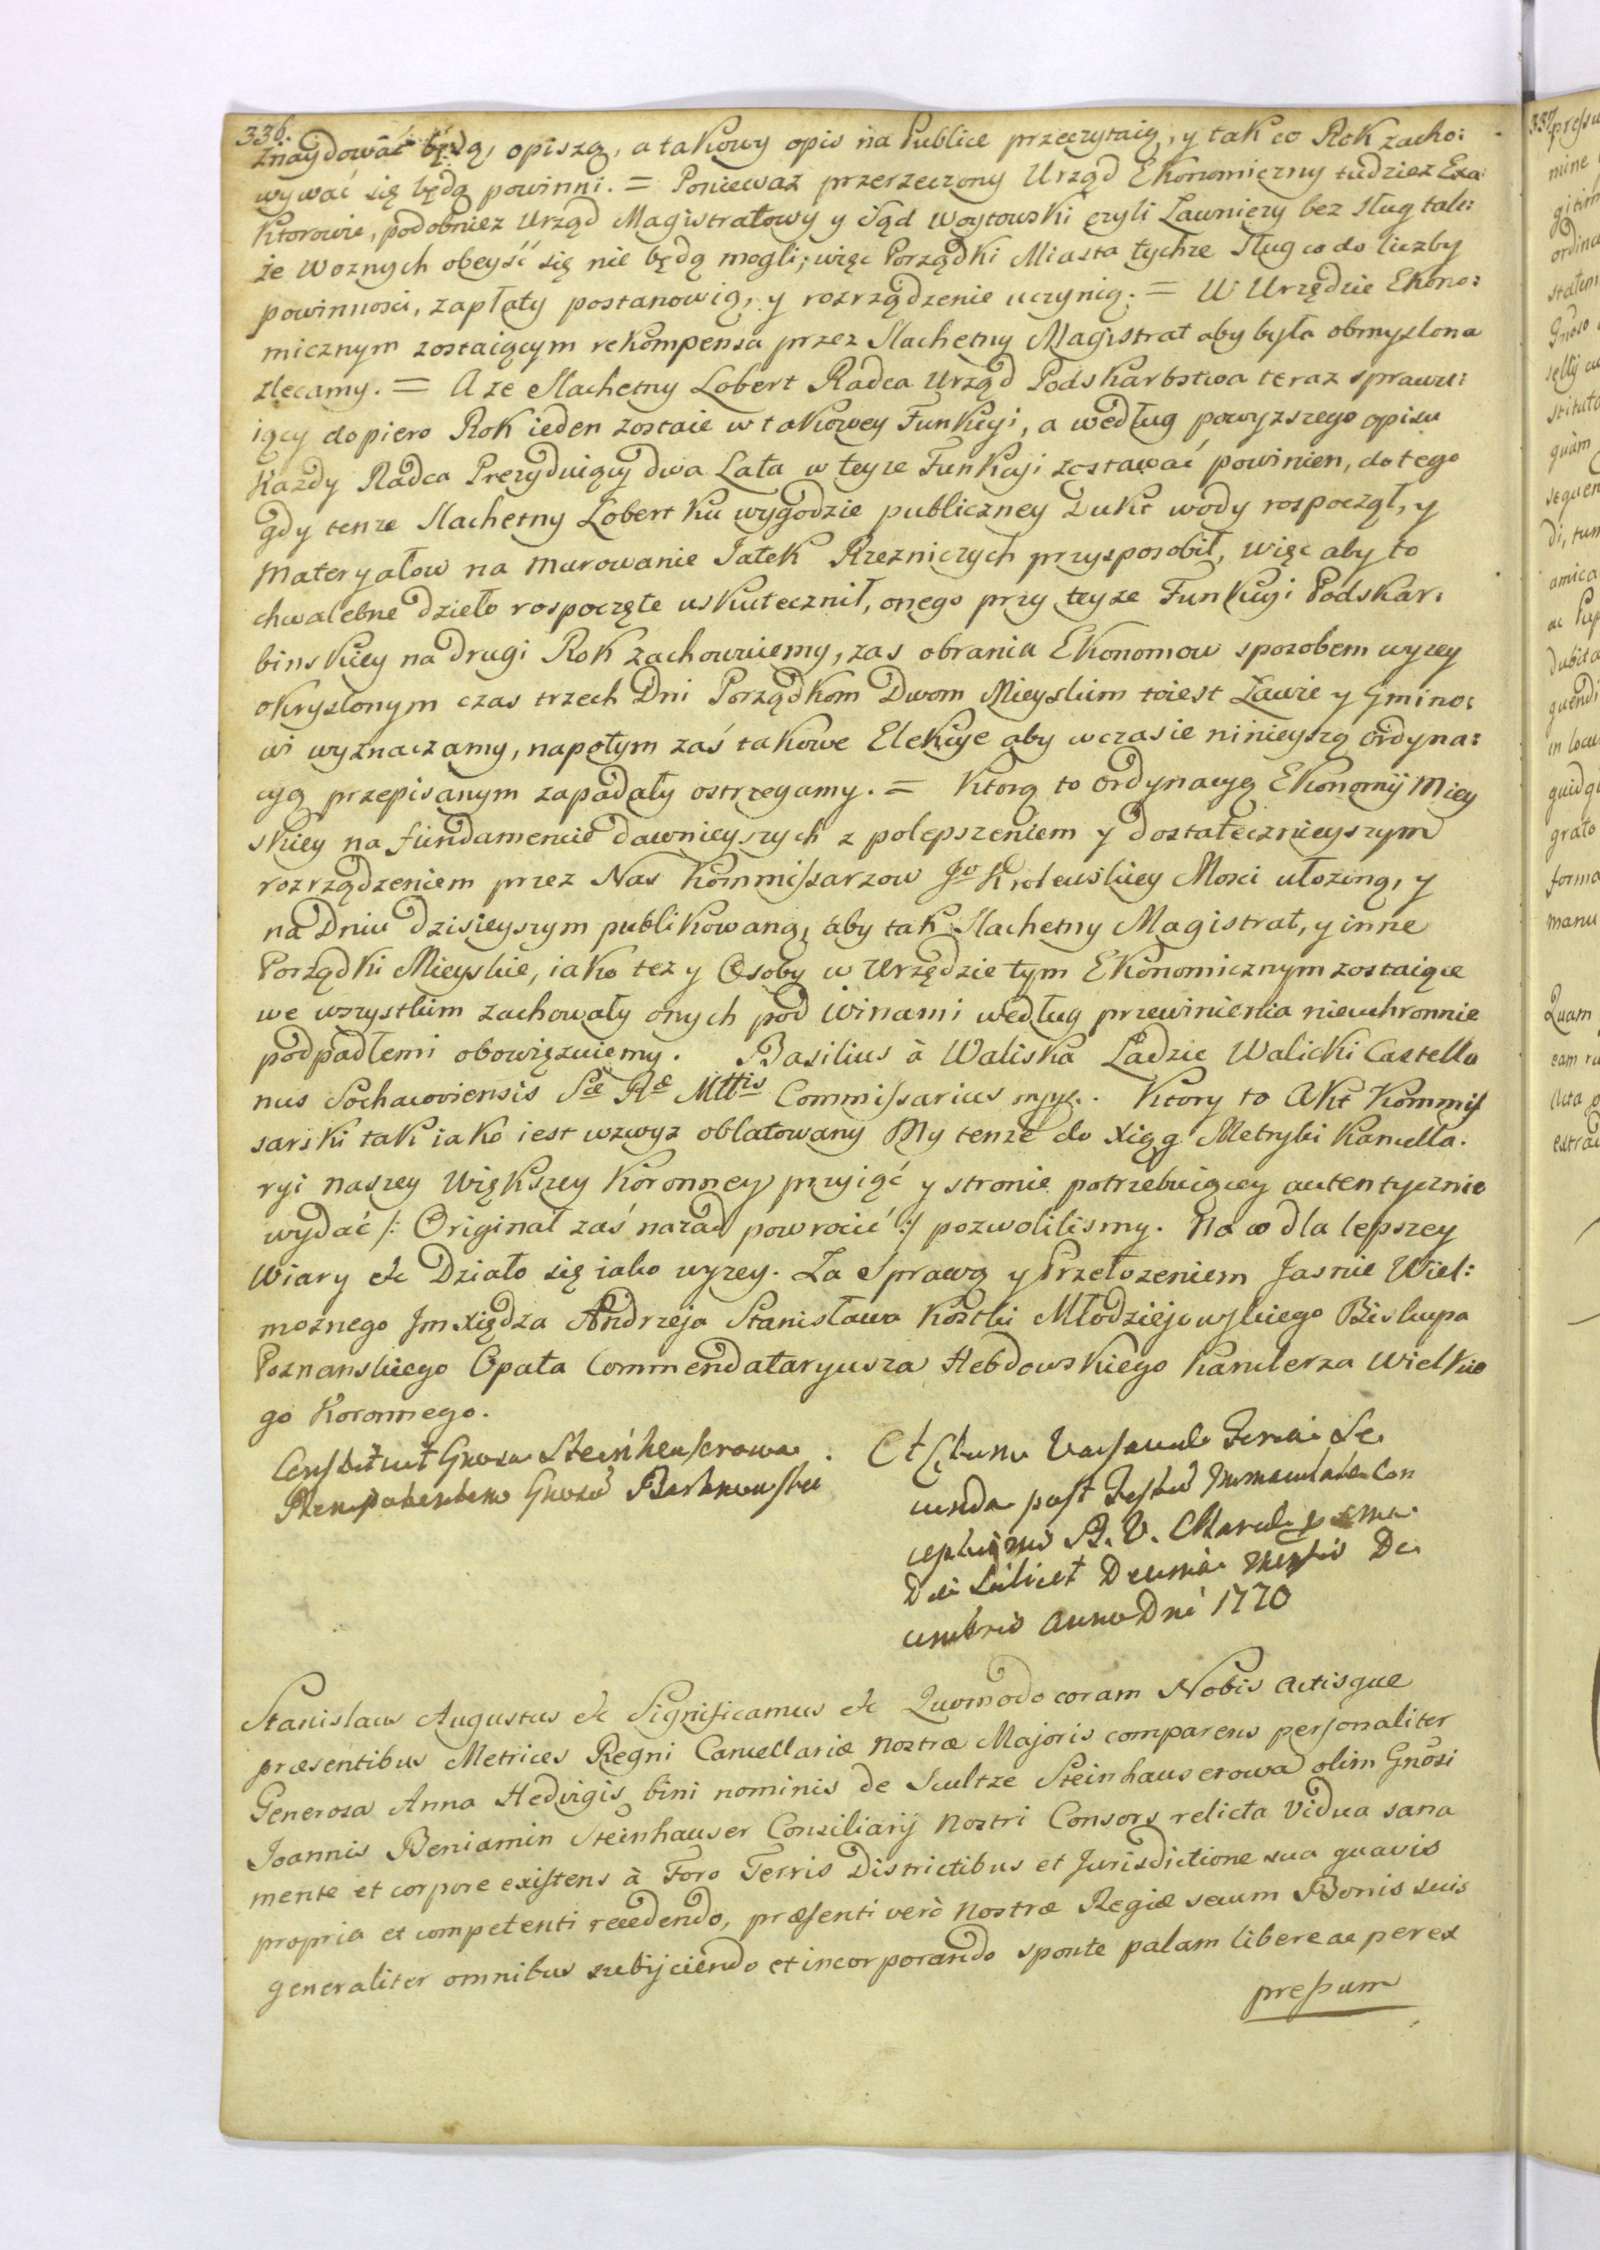 336.
Znaydować będą, opiszą, a takowy opis na Publice przeczytaią, y tak co Rok zacho:
wywać się będą powinni. = Ponieważ przerzeczony Urząd Ekonomiczny tudziez Exa:
ktorowie, podobniez Urząd Magistratowy y Sąd Woytowski czyli Ławniczy bez Sług tak:
że Woznych obeyść się nie będą mogli; więc Porządki Miasta tychże Sług co do liczby
powinnosci, zapłaty postanowią, y rozrządzenie uczynią. = W Urzędzie Ekono:
micznym zostaiącym rekompensa przez Slachetny Magistrat aby była obmyslona
zlecamy. = A ze Slachetny Lobert Radca Urząd Podskarbstwa teraz sprawu:
iący dopiero Rok ieden zostaie w takowey Funkcyi, a według powyzszego opisu
Kazdy Radca Prezyduiący dwa Lata w teyze Funkcyi zostawać powinien, do tego
gdy tenze Slachetny Lobert ku wygodzie publiczney Dukt wody rospoczął, y
Materyałow na Murowanie Jatek Rzezniczych przysposobił, więc aby to
chwalebne dzieło rospoczęte uskutecznił, onego przy teyze Funkcyi Podskar:
binskiey na drugi Rok zachowuiemy, zas obrania Ekonomow sposobem wyzey
okryslonym czas trzech Dni Porządkom Dwom Mieyskim toiest Ławie y Gmino:
wi wyznaczamy, napotym zaś takowe Elekcye aby w czasie ninieyszą Ordyna:
cyą przepisanym zapadały ostrzegamy. = Ktorą to Ordynacyą Ekonomij Miey
skiey na fundamencie dawnieyszych z polepszeniem y dostatecznieyszym
rozrządzeniem przez Nas Kommissarzow Jo Krolewskiey Mosci ułozoną, y
na Dniu dzisieyszym publikowaną, aby tak Slachetny Magistrat, y inne
Porządki Mieyskie, iako tez y Osoby w Urzędzie tym Ekonomicznym zostaiące
we wszystkim zachowały onych pod Winami według przewinienia nieuchronnie
podpadłemi obowięzuiemy. Basilius à Waliska Ladzie Walicki Castella
nus Sochacoviensis Sæ Ræ Mttis Commissarius mpp. Ktory to Akt Kommis
sarski tak iako iest wzwyz oblatowany My tenze do Xiąg Metryki Kancella.
ryi naszey Większey Koronney przyiąć y stronie potrzebuiącey autentycznie
wydać /: Originał zaś nazad powrocić :/ pozwolilismy. Na co dla lepszey
Wiary etc Działo się iako wyzey. Za Sprawą y Przełozeniem Jasnie Wiel:
moznego Jmxiędza Andrzeja Stanisława Kostki Młodziejowskiego Biskupa
Poznanskiego Opata Commendataryusza Hebdowskiego Kanclerza Wielkie
go Koronnego.
Constituit Gnosa Steinhauserowa
Plenipotentem Gnosū Bartnowski
Actum Varsaviæ Feria Se
cunda post Festū Immaculatæ Con
ceptionis B. V. Mariæ
Die Scilicet Decima Mensis De
cembris Anno Dni 1770
Stanislaus Augustus etc Significamus etc Quomodo coram Nobis Actisque
præsentibus Metrices Regni Cancellariæ Nostræ Majoris comparens personaliter
Generosa Anna Hedvigis bini nominis de Scultze Steinhauserowa olim Gnosi
Joannis Beniamin Steinhauser Consiliarij Nostri Consors relicta Vidua sana
mente et corpore existens à Foro Terris Districtibus et Jurisdictione sua quavis
propria et competenti recedendo, præsenti verò Nostræ Regiæ secum Bonis suis
generaliter omnibus subijciendo et incorporando sponte palam libere ac per ex
pressum